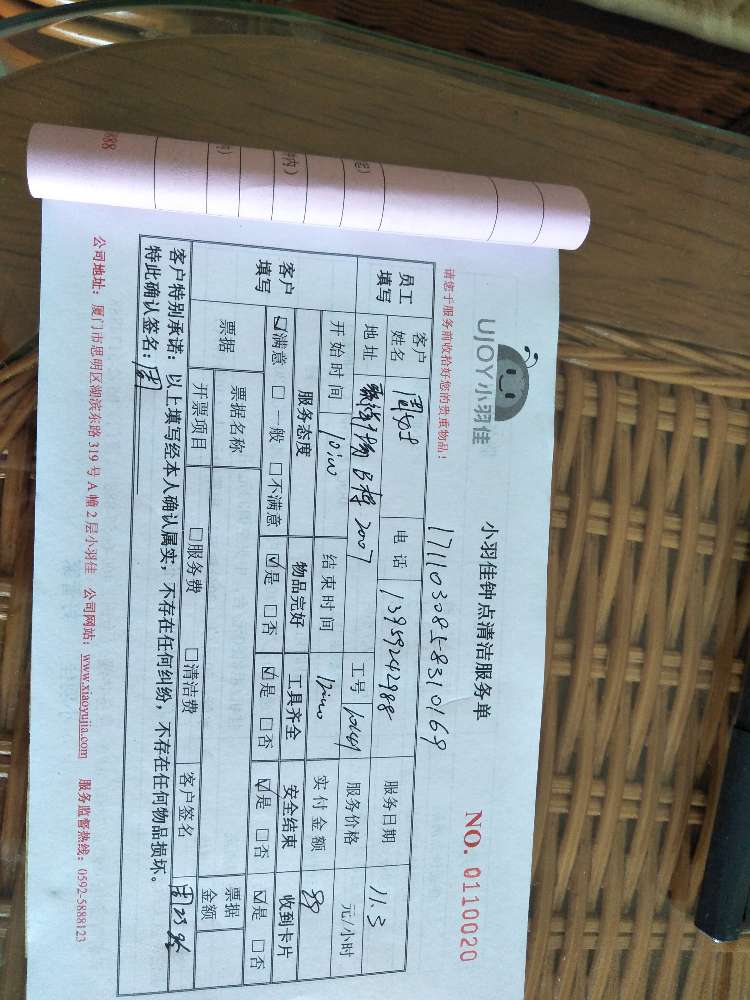 UJOY小羽佳
小羽佳钟点清洁服务单
NO. 0110020
请您于服务前收拾好您的贵重物品!
17110308583101 69
员工填写 客户姓名 电话 13959242988 服务日期 11.3
地址 B栋 2007 工号 服务价格 元/小时
开始时间 10:00 结束时间 12:00 实付金额 89
客户填写 服务态度 物品完好 工具齐全 安全结束 收到卡片
☑满意 □一般 □不满意 ☑是 □否 ☑是 □否 ☑是 □否 ☑是 □否
票据 票据名称 票据金额
开票项目 □服务费 □清洁费 客户签名
客户特别承诺:以上填写经本人确认属实,不存在任何纠纷,不存在任何物品损坏。
特此确认签名:
公司地址:厦门市思明区湖滨东路319号A幢2层小羽佳 公司网站:www.xiaoyujia.com 服务监督热线:0592-5888123